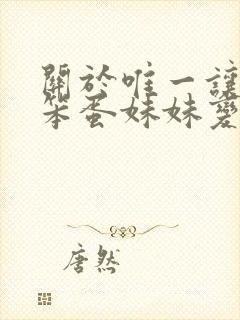 關於唯一讓
笨蛋妹妹愛
唐然